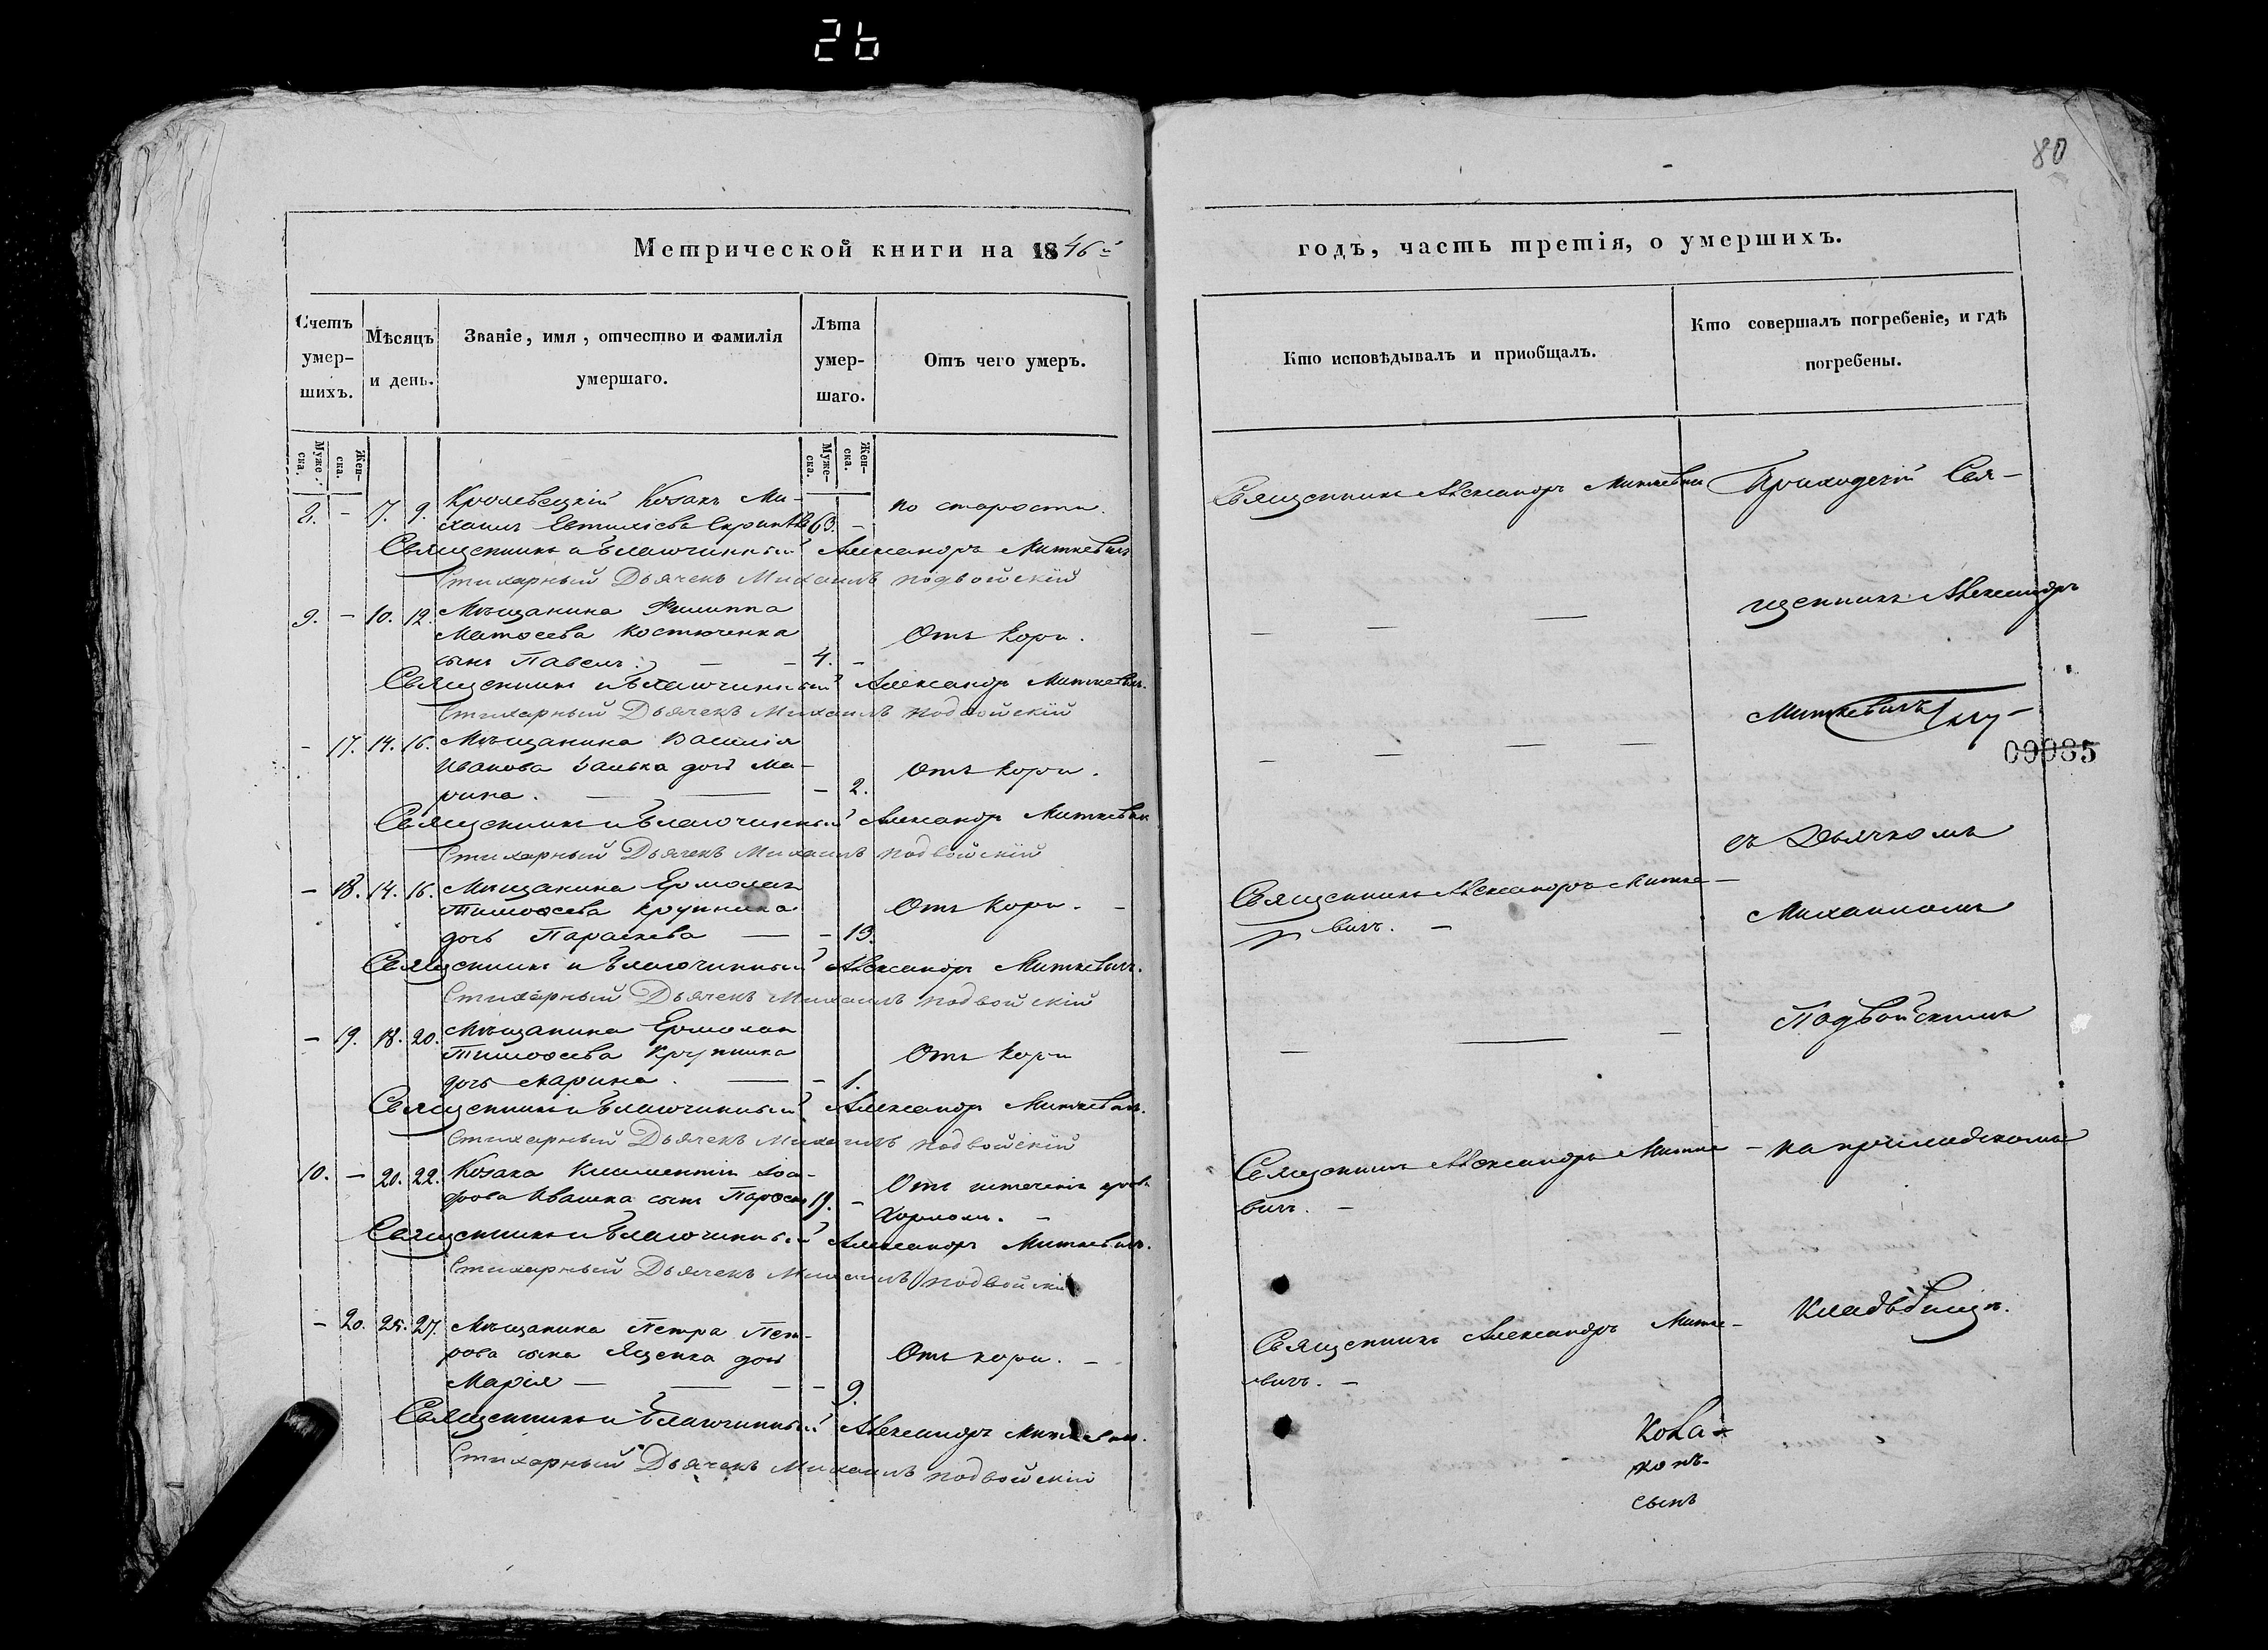 26
80
Метрической книги на 1846й
годъ, часть третія, о умершихъ.
Счетъ умер-шихъ.
Мѣсяцъ и день.
Званіе, имя, отчество и фамилія умершаго.
Лѣта умер-шаго.
Отъ чего умеръ.
Кто исповѣдывалъ и приобщалъ.
Кто совершалъ погребеніе, и гдѣ погребены.
Муже-ска.
Жен-ска.
Муже-ска.
Жен-ска.
Кролевецкій Козакъ Ми-
2. - 7. 9. хаилъ 63. -
по старости.
Священникъ Александръ Миткевич
Приходскій Свя-
Священникъ и Благочинный Александръ Миткевичъ
Стихарный Дьячекъ Михаилъ Подвойскій
9. - 10. 12. Мѣщанина Филиппа
Матѳеева Костюченка
сынъ Павелъ. - - 4. -
Отъ кори.
щенникъ Александръ
Священникъ и Благочинный Александръ Миткевичъ.
Стихарный Дьячекъ Михаилъ Подвойскій
Миткевичъ
- 17. 14. 16. Мѣщанина Василія
Иванова дочь Ма-
рина. - - - 2.
Отъ кори.
09985
Священникъ и Благочинный Александръ Миткевич
Стихарный Дьячекъ Михаилъ Подвойскій
съ Дьячкомъ
- 18. 14. 16. Мѣщанина Ермолая
Тимоѳеева Крупника
дочь Параскева - - 13.
Отъ кори. -
Священникъ Александръ Митке-
вичъ. -
Михаиломъ
Священникъ и Благочинный Александръ Миткевичъ.
Стихарный Дьячекъ Михаилъ Подвойскій
- 19. 18. 20. Мѣщанина Ермолая
Тимоѳеева Крупника
дочь Марина. - - 1.
Отъ кори
Подвойскимъ
Священникъ и Благочинный Александръ Миткевичъ.
Стихарный Дьячекъ Михаилъ Подвойскій
10. - 20. 22. Козака Климентія
Ивашка сынъ 19. -
Отъ
Священникъ Александръ Митке-
вичъ. -
на приходскомъ
Священникъ и Благочинный Александръ Миткевичъ.
Стихарный Дьячекъ Михаилъ Подвойскій
- 20. 25. 27. Мѣщанина Петра Пет-
рова сына Яценка дочь
Марія - - - - 9.
Отъ кори. -
Священникъ Александръ Митке-
вичъ. -
кладбищѣ.
Священникъ и Благочинный Александръ Миткевич.
Стихарный Дьячекъ Михаилъ Подвойскій
сынъ